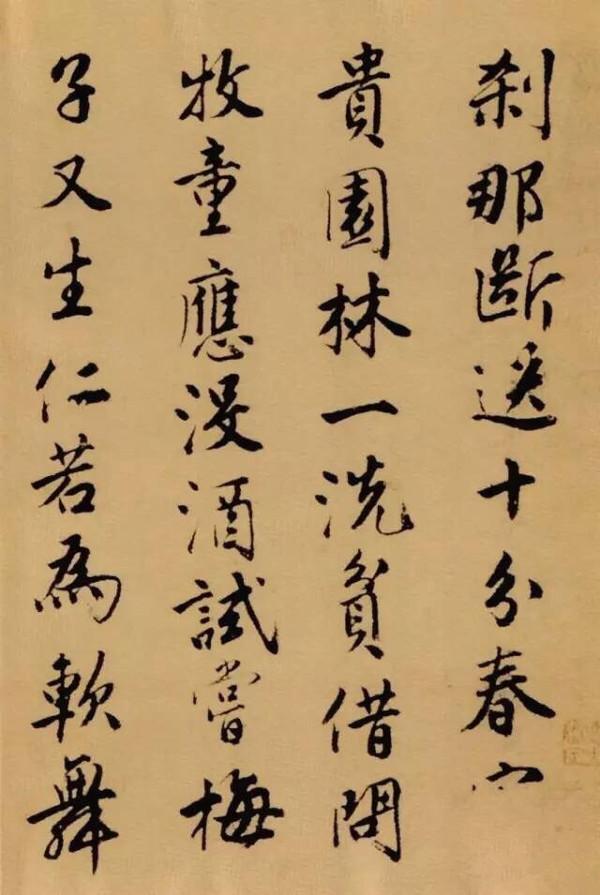 刹那斷送十分春
貴園林一洗貧借問
牧童應没酒試嘗梅
子又生仁若為軟舞